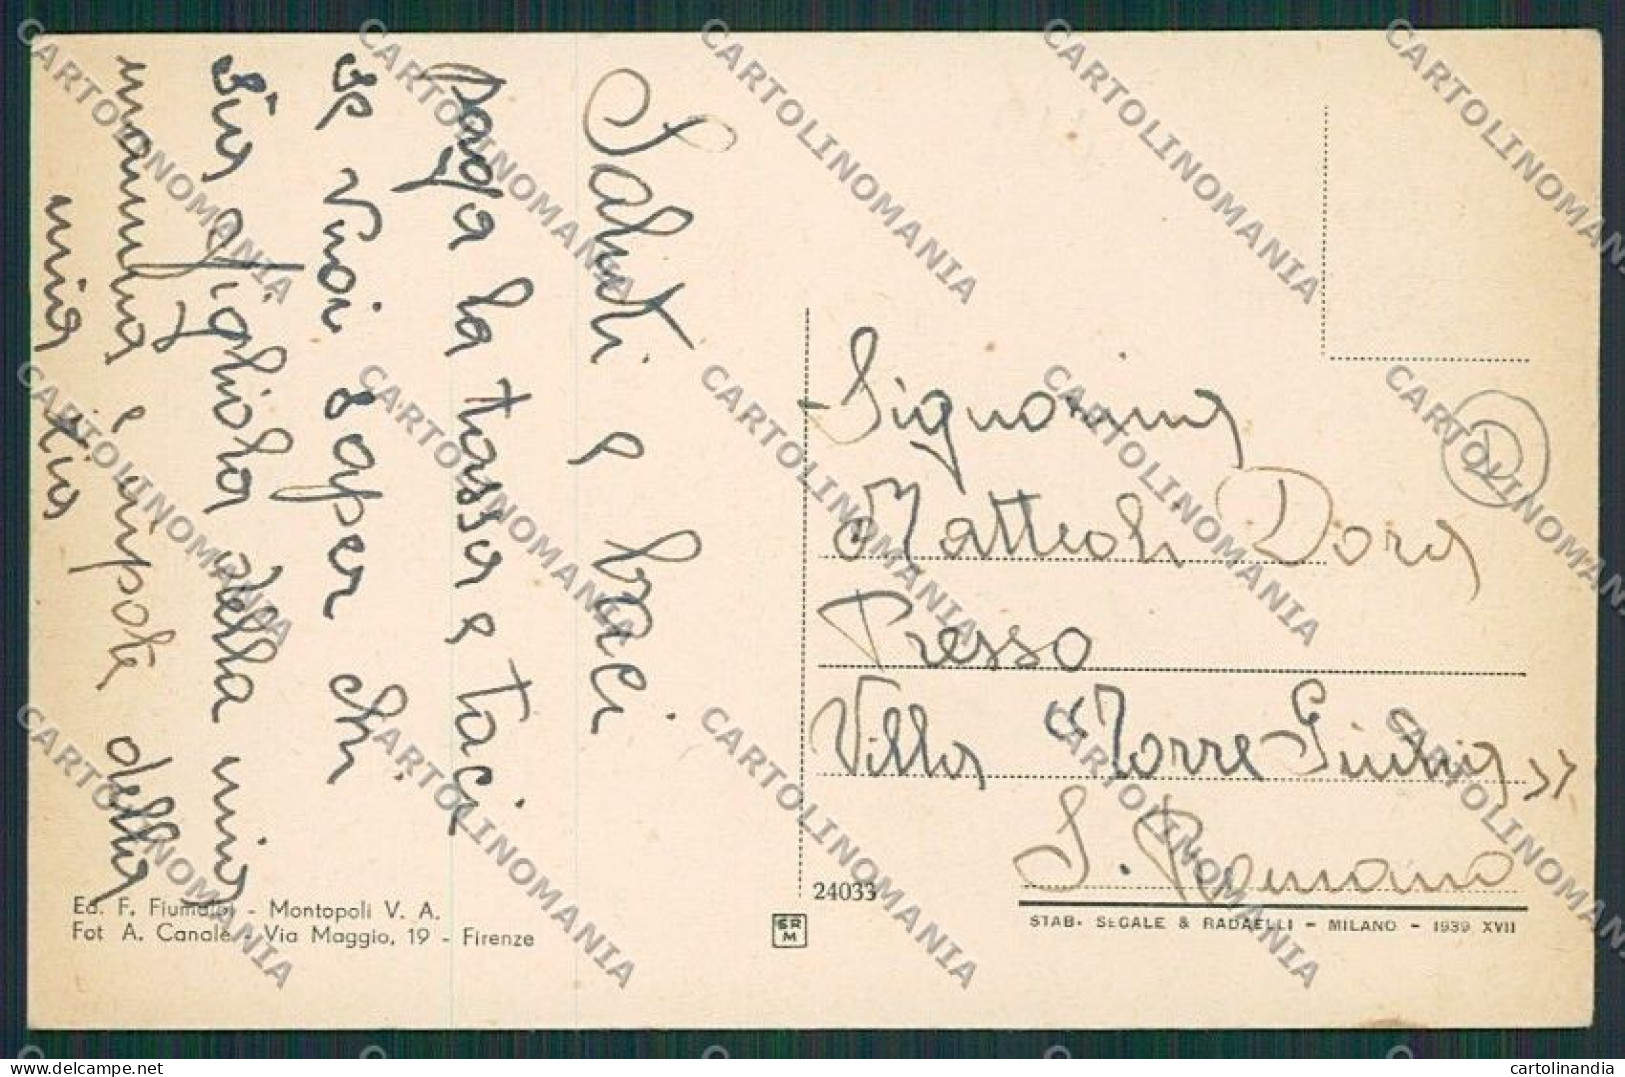 Saluti e baci
Paga la tassa e taci
se vuoi saper chi
sia figliola della mia
mamma e nipote della
mia zia
Signorina
Matteoli Dora
Presso
Villa "Torre Giulia"
S. Romano
D
24033
SR
M
Ed. F. Fiumalbi - Montopoli V. A.
Fot A. Canale - Via Maggio, 19 - Firenze
STAB. SEGALE & RADAELLI - MILANO - 1939 XVII
CARTOLINOMANIA
cartolinandia